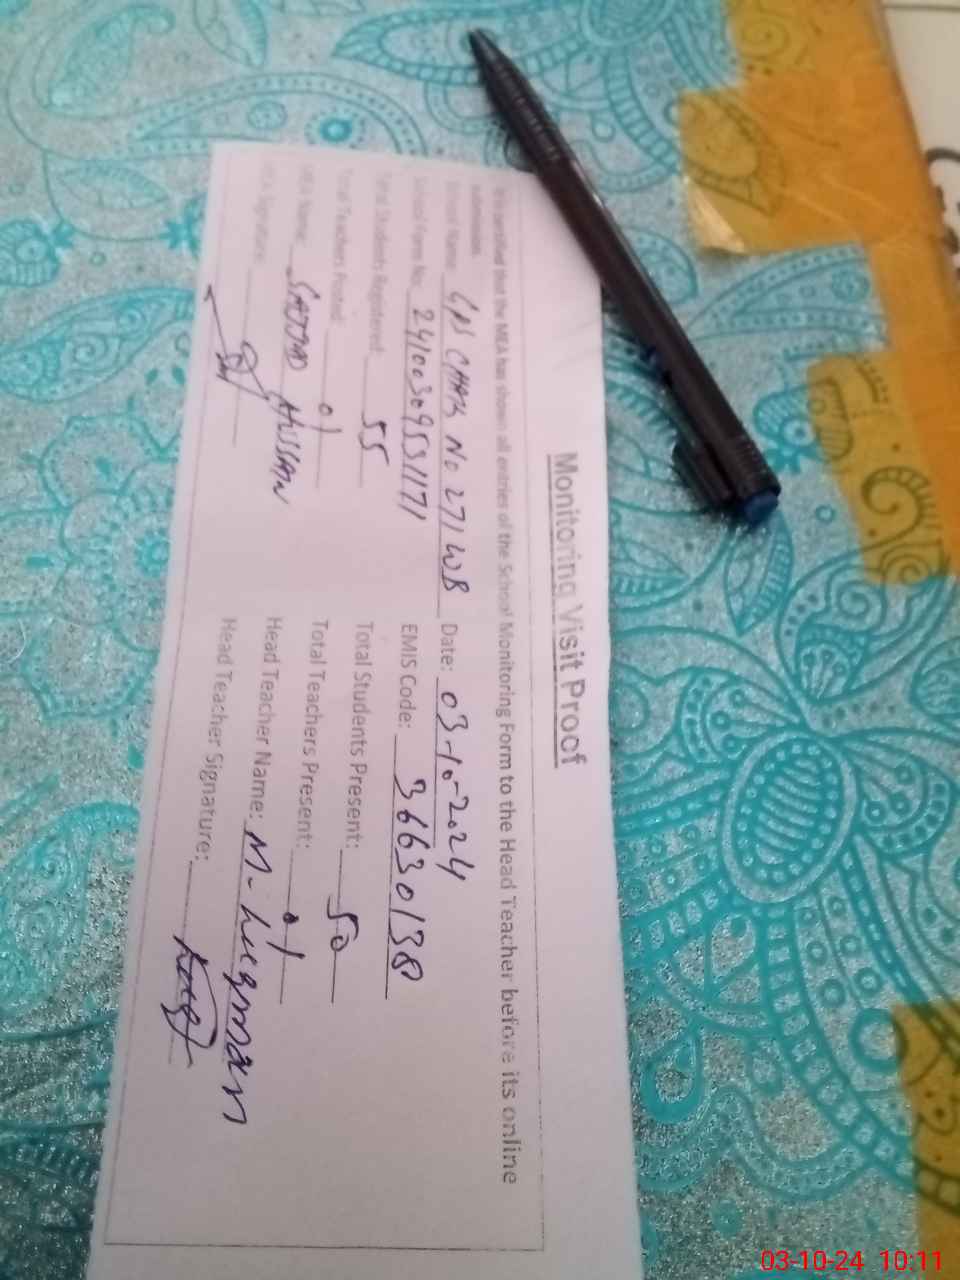 Monitoring Visit Proof
It is certified that the MEA has shown all entries of the School Monitoring Form to the Head Teacher before its online
submission.
School Name: GPS CHAK No 271 WB Date: 03-10-2024
School Form No: 24100309531171 EMIS Code: 36630138
Total Students Registered: 55 Total Students Present: 50
Total Teachers Posted: 01 Total Teachers Present: 01
MEA Name: SAJJAD HUSSAIN Head Teacher Name: M. Luqman
MEA Signature: Head Teacher Signature:
03-10-24 10:11